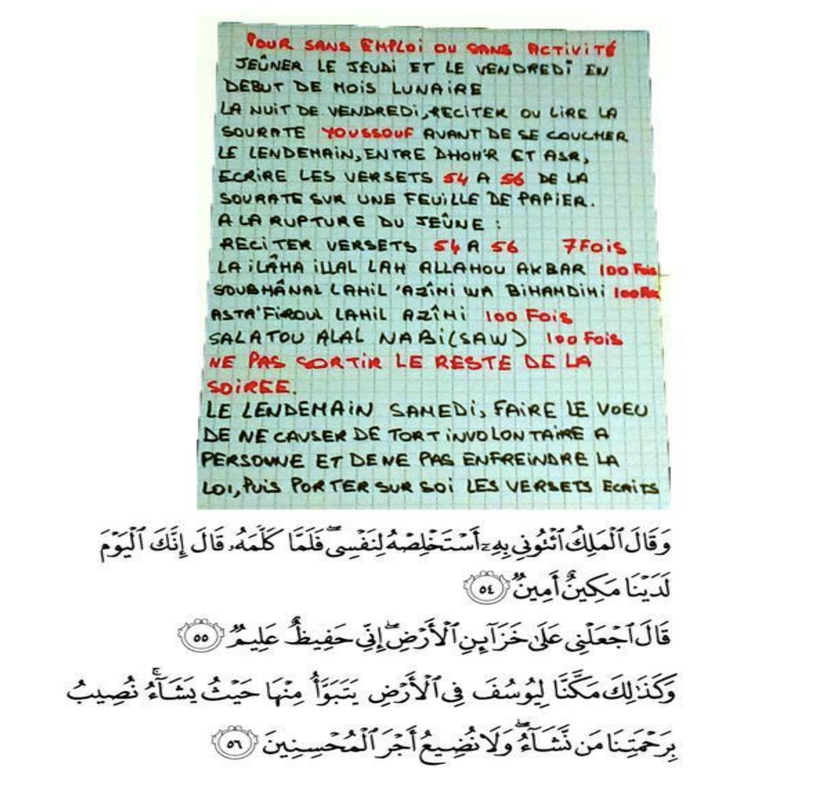 POUR SANS EMPLOI OU SANS ACTIVITÉ
JEÛNER LE JEUDI ET LE VENDREDI EN
DEBUT DE MOIS LUNAIRE
LA NUIT DE VENDREDI, RECITER OU LIRE LA
SOURATE YOUSSOUF AVANT DE SE COUCHER
LE LENDEMAIN, ENTRE DHOH'R ET ASR,
ECRIRE LES VERSETS 54 A 56 DE LA
SOURATE SUR UNE FEUILLE DE PAPIER.
A LA RUPTURE DU JEÛNE :
RECITER VERSETS 54 A 56 7 FOIS
LA ILÂHA ILLAL LAH ALLAHOU AKBAR 100 Fois
SOUBHÂNAL LAHIL 'AZÎMI WA BIHAMDIHI 100 Fois
ASTA'FIROUL LAHIL AZÎMI 100 FOIS
SALATOU ALAL NABI (SAW) 100 FOIS
NE PAS SORTIR LE RESTE DE LA
SOIREE.
LE LENDEMAIN SAMEDI, FAIRE LE VOEU
DE NE CAUSER DE TORT INVOLONTAIRE A
PERSONNE ET DE NE PAS ENFREINDRE LA
LOI, PUIS PORTER SUR SOI LES VERSETS ECRITS
وَقَالَ ٱلْمَلِكُ ٱئْتُونِي بِهِۦٓ أَسْتَخْلِصْهُ لِنَفْسِىۖ فَلَمَّا كَلَّمَهُۥ قَالَ إِنَّكَ ٱلْيَوْمَ
لَدَيْنَا مَكِينٌ أَمِينٌ ٥٤
قَالَ ٱجْعَلْنِى عَلَىٰ خَزَآئِنِ ٱلْأَرْضِۖ إِنِّى حَفِيظٌ عَلِيمٌ ٥٥
وَكَذَٰلِكَ مَكَّنَّا لِيُوسُفَ فِى ٱلْأَرْضِ يَتَبَوَّأُ مِنْهَا حَيْثُ يَشَآءُۚ نُصِيبُ
بِرَحْمَتِنَا مَن نَّشَآءُۖ وَلَا نُضِيعُ أَجْرَ ٱلْمُحْسِنِينَ ٥٦